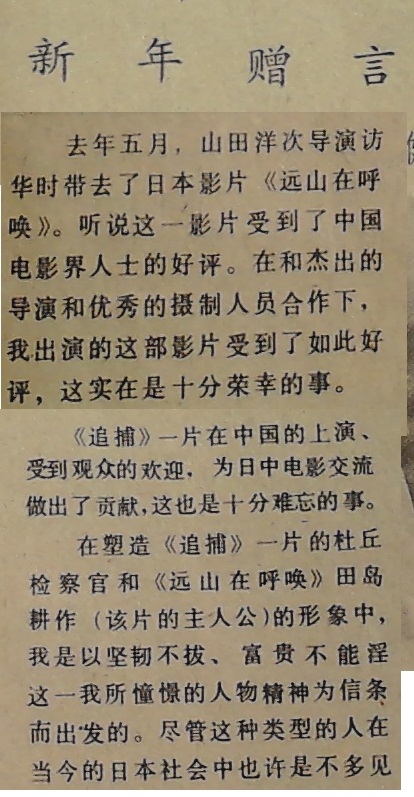 新年赠言
去年五月，山田洋次导演访
华时带去了日本影片《远山在呼
唤》。听说这一影片受到了中国
电影界人士的好评。在和杰出的
导演和优秀的摄制人员合作下，
我出演的这部影片受到了如此好
评，这实在是十分荣幸的事。
《追捕》一片在中国的上演、
受到观众的欢迎．为日中电影交流
做出了贡献，这也是十分难忘的事。
在塑造《追捕》一片的杜丘
检察官和《远山在呼唤》田岛
耕作（该片的主人公）的形象中，
我是以坚韧不拔、富贵不能淫
这一我所憧憬的人物精神为信条
而出发的。尽管这种类型的人在
当今的日本社会中也许是不多见